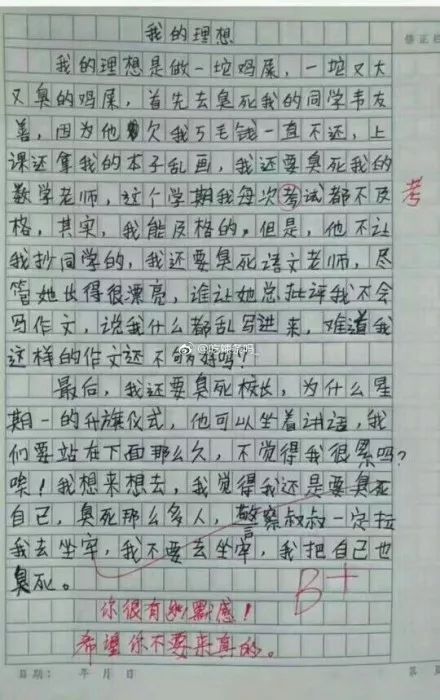 我的理想
修正栏
我的理想是做一坨鸡屎，一坨又大
又臭的鸡屎，首先去臭死我的同学韦友
善，因为他欠我5毛钱一直不还，上
课还拿我的本子乱画，我还要臭死我的
数学老师，这个学期我每次考试都不及
考
格，其实，我能及格的，但是，他不让
我抄同学的，我还要臭死语文老师，尽
管她长得很漂亮，谁让她总批评我不会
写作文，说我什么都乱写进来，难道我
这样的作文还不够好吗！
最后，我还要臭死校长，为什么星
期一的升旗仪式，他可以坐着讲话，我
们要站在下面那么久，不觉得我很累吗？
唉！我想来想去，我觉得我还是要臭死
自己，臭死那么多人，警察叔叔一定拉
我去坐牢，我不要去坐牢，我把自己也
臭死。
B+
你很有幽默感！
希望你不要来真的。
日期： 年 月 日
第